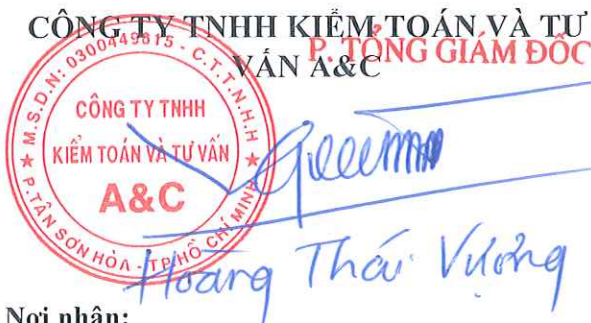 CÔNG TY TNHH KIỂM TOÁN VÀ TƯ
VẤN A&C
P. TỔNG GIÁM ĐỐC
M.S.D.N: 0300449815 - C.T.T.N.H.H
CÔNG TY TNHH
KIỂM TOÁN VÀ TƯ VẤN
A&C
P. TÂN SƠN HÒA - TP. HỒ CHÍ MINH
Hoàng Thái Vượng
Nơi nhận: